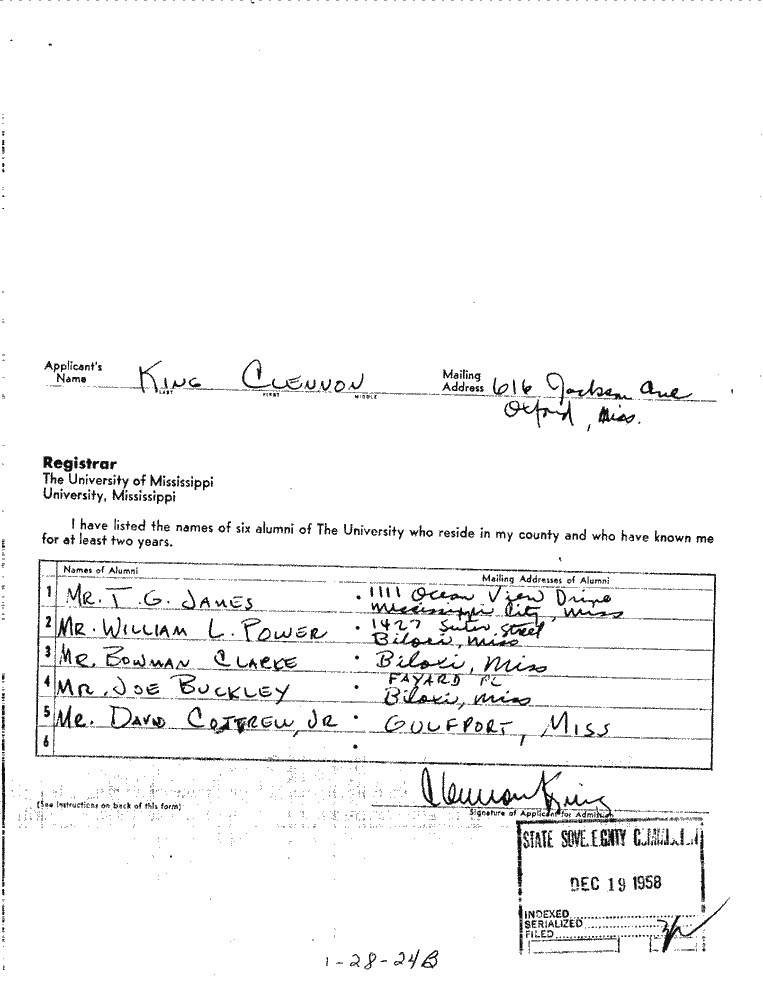 Applicant's
Name KING CLENNON
LAST FIRST MIDDLE
Mailing
Address 616 Jackson Ave
Oxford, Miss.
Registrar
The University of Mississippi
University, Mississippi
I have listed the names of six alumni of The University who reside in my county and who have known me
for at least two years.
Names of Alumni Mailing Addresses of Alumni
1 MR. T. G. JAMES 1111 Ocean View Drive
Mississippi City, Miss
2 MR. WILLIAM L. POWER 1427 Street
Biloxi, Miss
3 MR. BOWMAN CLARKE Biloxi, Miss
4 MR. JOE BUCKLEY FAYARD PL
Biloxi, Miss
5 MR. DAVID JR GULFPORT, MISS
6
Clennon King
(See instructions on back of this form) Signature of Applicant for Admission
STATE
DEC 19 1958
INDEXED
SERIALIZED
FILED
1-28-24B